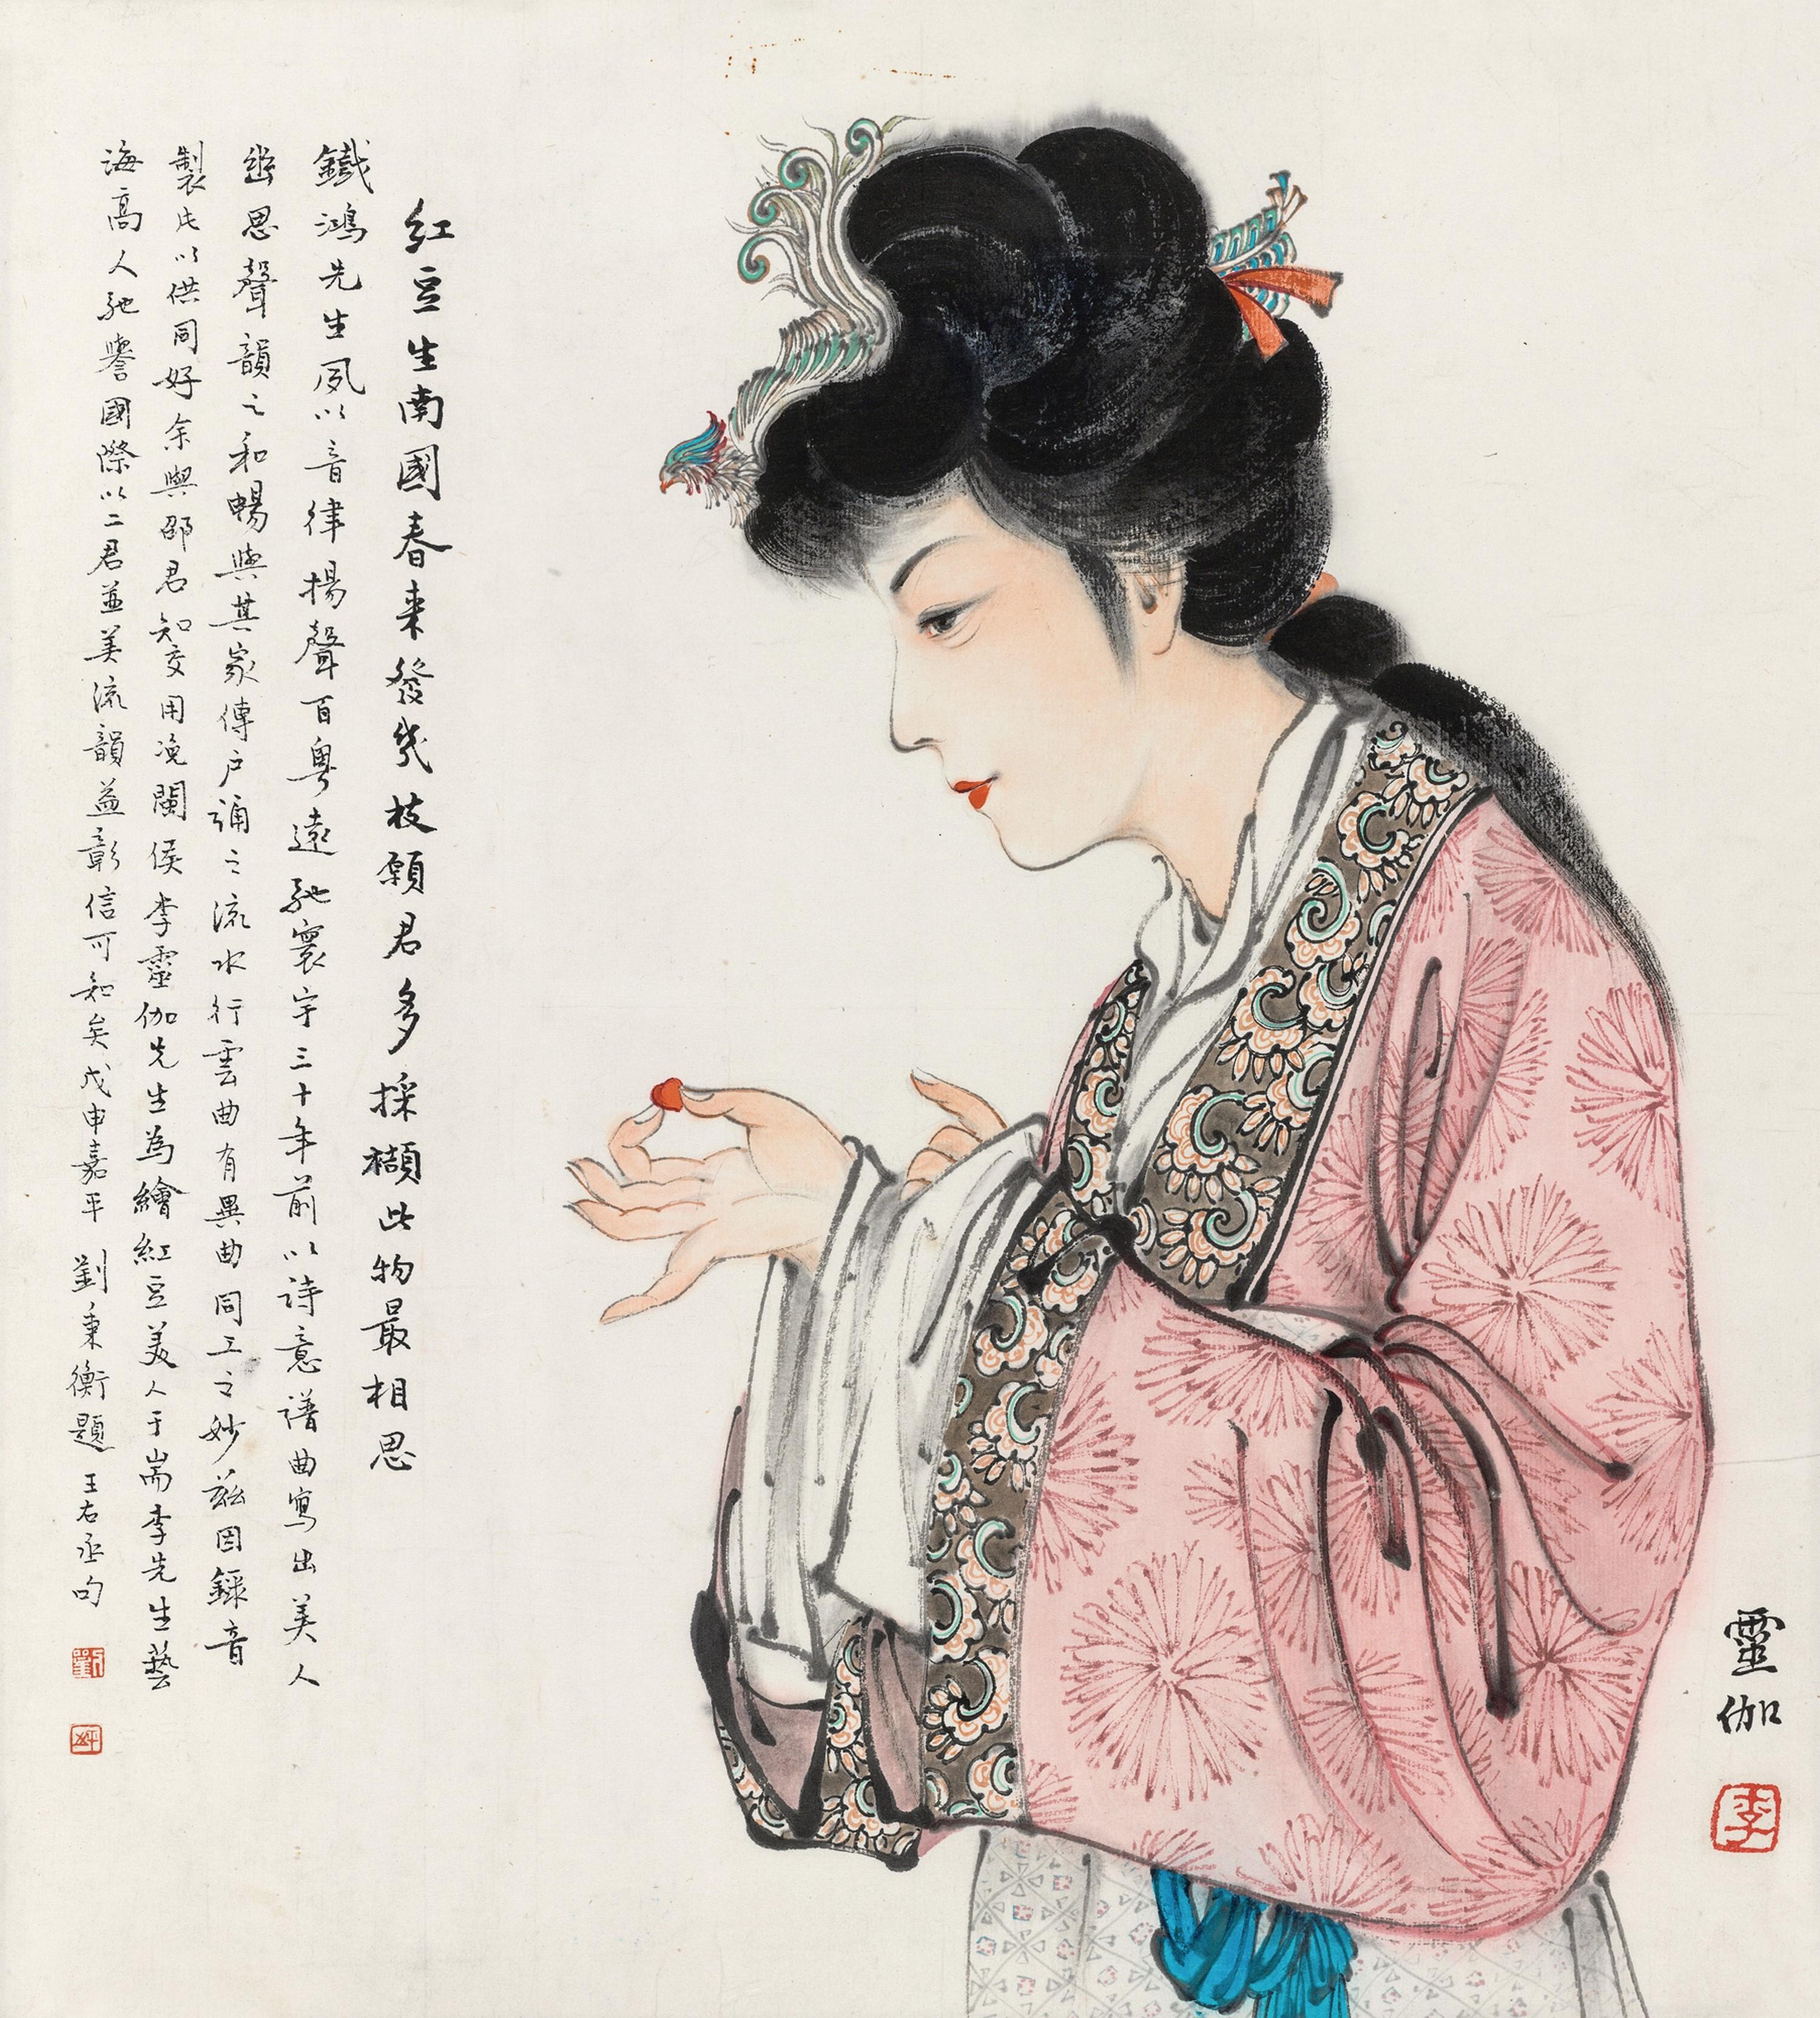 紅豆生南國春來發幾枝願君多採擷此物最相思
鐵鴻先生夙以音律揚聲百粵遠馳寰宇三十年前以詩意譜曲寫出美人
幽思聲韻之和暢與其家傳戶誦之流水行雲曲有異曲同工之妙茲因錄音
製片以供同好余與邵君知交用浼閩侯李靈伽先生為繪紅豆美人于耑李先生藝
海高人馳譽國際以二君並美流韻益彰信可知矣戊申嘉平 劉秉衡題 王右丞句
劉
靈伽
李